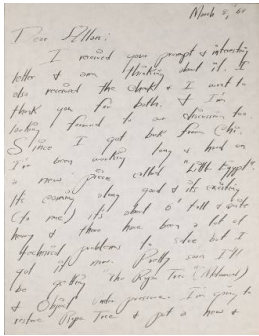 March 8, 60
Dear Ellen:
I received your prompt & interesting
letter & am thinking about it. I
also received the check & I want to
thank you for both. & I'm
looking forward to our discussion too.
Since I got back from Chi.
I'm been working long & hard on
a new piece called "Little Egypt"
Its coming along good & its exciting
(to me) its about 6' tall & quite
heavy & there have been a lot of
technical problems to solve but I
got it now. Pretty soon I'll
be getting "The Tree"
& under pressure. I'm going to
restore Tree & put a new &